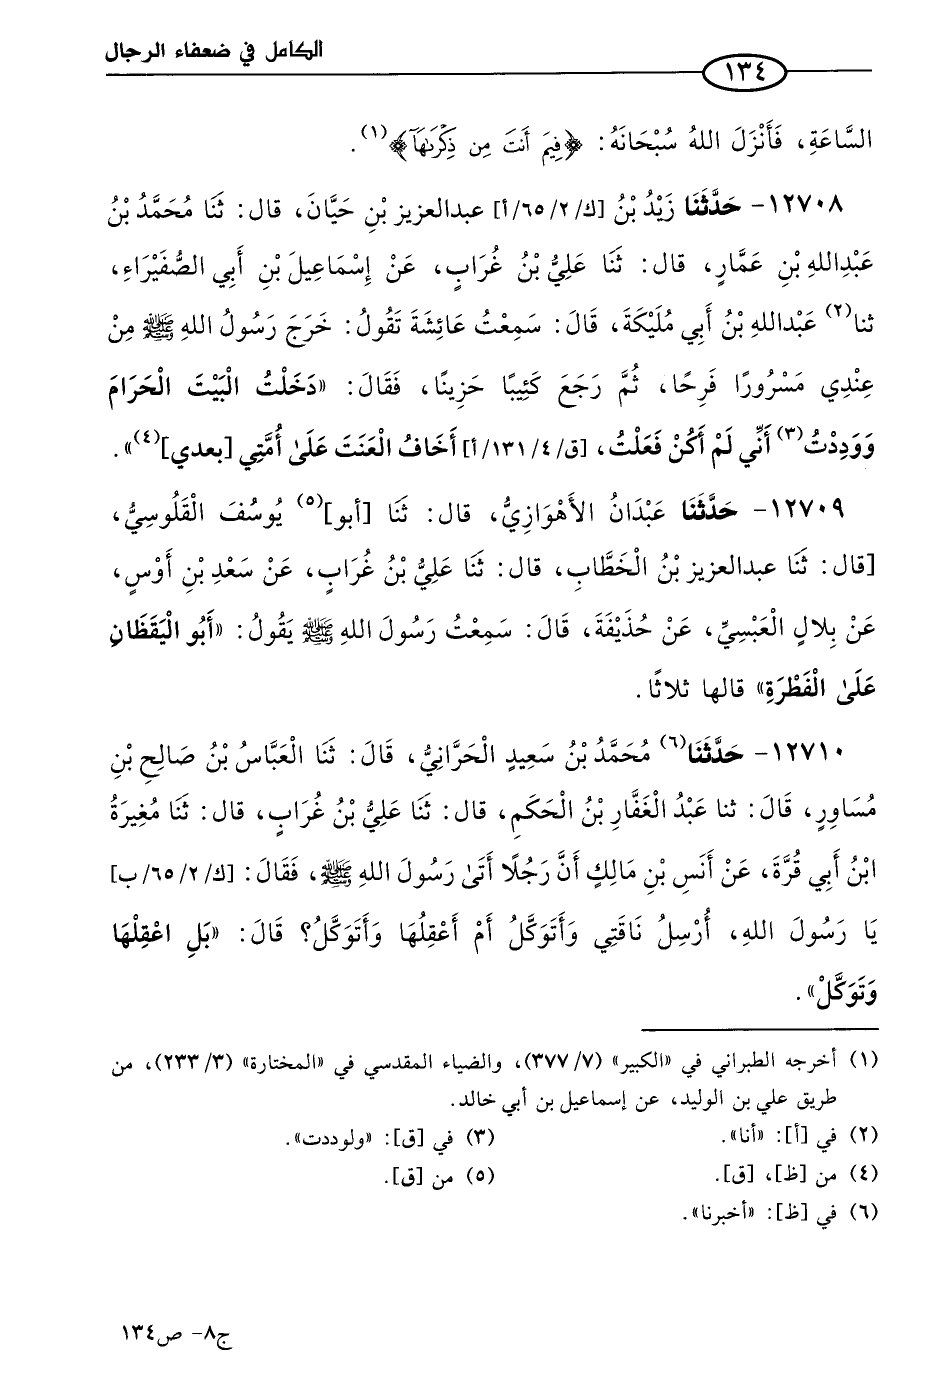 الكامل في ضعفاء الرجال
١٣٤
السَّاعَةِ، فَأَنْزَلَ اللهُ سُبْحَانَهُ: ﴿فِيمَ أَنتَ مِن ذِكْرَىٰهَآ﴾(١).
١٢٧٠٨- حَدَّثَنَا زَيْدُ بْنُ [ك/ ٢/ ٦٥/ أ] عبدالعزيز بْنِ حَيَّانَ، قال: ثَنَا مُحَمَّدُ بْنُ
عَبْدِاللهِ بْنِ عَمَّارٍ، قال: ثَنَا عَلِيُّ بْنُ غُرَابٍ، عَنْ إِسْمَاعِيلَ بْنِ أَبِي الصُّفَيْرَاءِ،
ثنا(٢) عَبْداللهِ بْنُ أَبِي مُلَيْكَةَ، قَالَ: سَمِعْتُ عَائِشَةَ تَقُولُ: خَرَجَ رَسُولُ اللهِ ﷺ مِنْ
عِنْدِي مَسْرُورًا فَرِحًا، ثُمَّ رَجَعَ كَئِيبًا حَزِينًا، فَقَالَ: «دَخَلْتُ الْبَيْتَ الْحَرَامَ
وَوَدِدْتُ(٣) أَنِّي لَمْ أَكُنْ فَعَلْتُ، [ق/ ٤/ ١٣١/ أ] أَخَافُ الْعَنَتَ عَلَىٰ أُمَّتِي [بعدي](٤)».
١٢٧٠٩- حَدَّثَنَا عَبْدَانُ الأَهْوَازِيُّ، قال: ثَنَا [أبو](٥) يُوسُفَ الْقَلُوسِيُّ،
[قال: ثَنَا عبدالعزيز بْنُ الْخَطَّابِ، قال: ثَنَا عَلِيُّ بْنُ غُرَابٍ، عَنْ سَعْدِ بْنِ أَوْسٍ،
عَنْ بِلالٍ الْعَبْسِيِّ، عَنْ حُذَيْفَةَ، قَالَ: سَمِعْتُ رَسُولَ اللهِ ﷺ يَقُولُ: «أَبُو الْيَقَظَانِ
عَلَىٰ الْفَطْرَةِ» قالها ثلاثًا.
١٢٧١٠- حَدَّثَنَا(٦) مُحَمَّدُ بْنُ سَعِيدٍ الْحَرَّانِيُّ، قَالَ: ثَنَا الْعَبَّاسُ بْنُ صَالِحِ بْنِ
مُسَاوِرٍ، قَالَ: ثنا عَبْدُ الْغَفَّارِ بْنُ الْحَكَمِ، قال: ثَنَا عَلِيُّ بْنُ غُرَابٍ، قال: ثَنَا مُغِيرَةُ
ابْنُ أَبِي قُرَّةَ، عَنْ أَنَسِ بْنِ مَالِكٍ أَنَّ رَجُلًا أَتَىٰ رَسُولَ اللهِ ﷺ، فَقَالَ: [ك/ ٢/ ٦٥/ ب]
يَا رَسُولَ اللهِ، أُرْسِلُ نَاقَتِي وَأَتَوَكَّلُ أَمْ أَعْقِلُهَا وَأَتَوَكَّلُ؟ قَالَ: «بَلِ اعْقِلْهَا
وَتَوَكَّلْ».
(١) أخرجه الطبراني في «الكبير» (٧/ ٣٧٧)، والضياء المقدسي في «المختارة» (٣/ ٢٣٣)، من
طريق علي بن الوليد، عن إسماعيل بن أبي خالد.
(٢) في [أ]: «أنا». (٣) في [ق]: «ولوددت».
(٤) من [ظ]، [ق]. (٥) من [ق].
(٦) في [ظ]: «أخبرنا».
ج٨- ص١٣٤